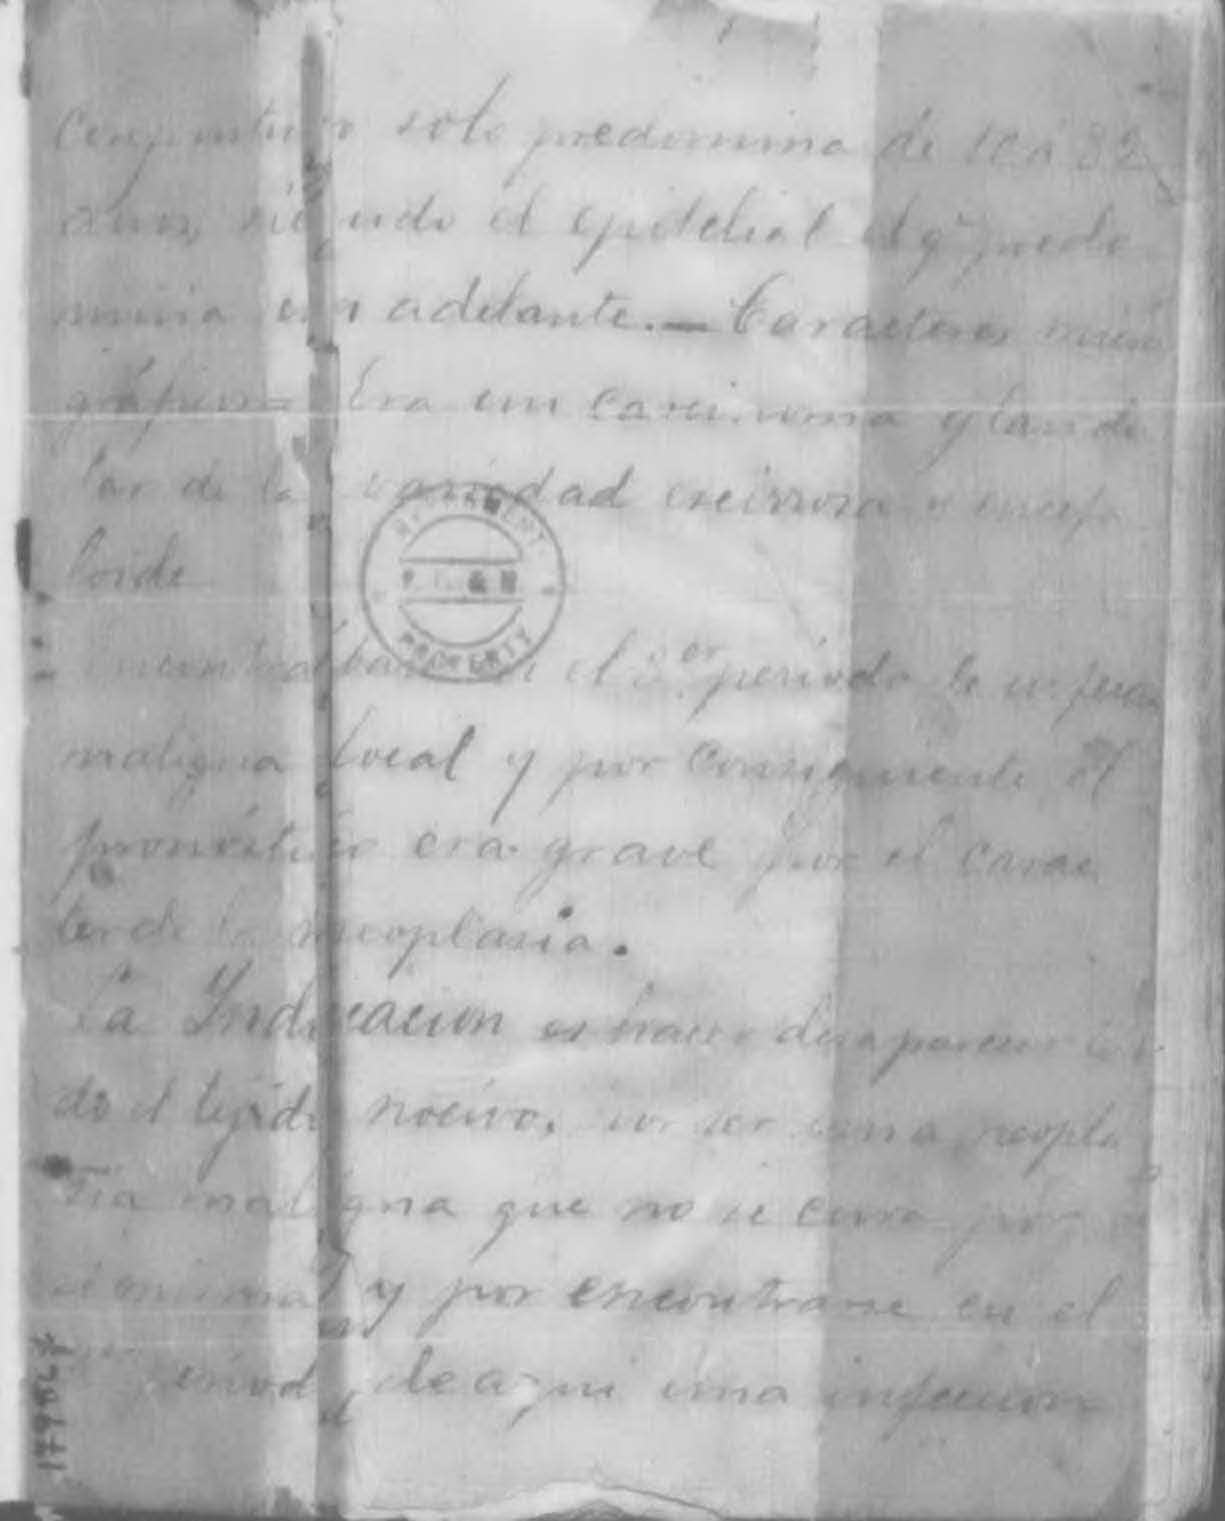 Conjuntivo solo predomina de 10 á 32
años, siendo el epitelial el q.e predo
mina en adelante. — Caracteres micro
gráficos = Era un carcinoma glandu
lar de la variedad escirrosa o encefa
loide
Encontrábase en el 3.er período de
maligna local y por consiguiente el
pronóstico era grave por el carac
ter de la neoplasia.
La Indicacion es hacer desaparecer to
do el tejido nocivo, por ser una neopla
sia maligna que no se cura por
si misma y por encontrarse en el
de aqui una infeccion
GOVERNMENT
P. I. & R
PROPERTY
17986